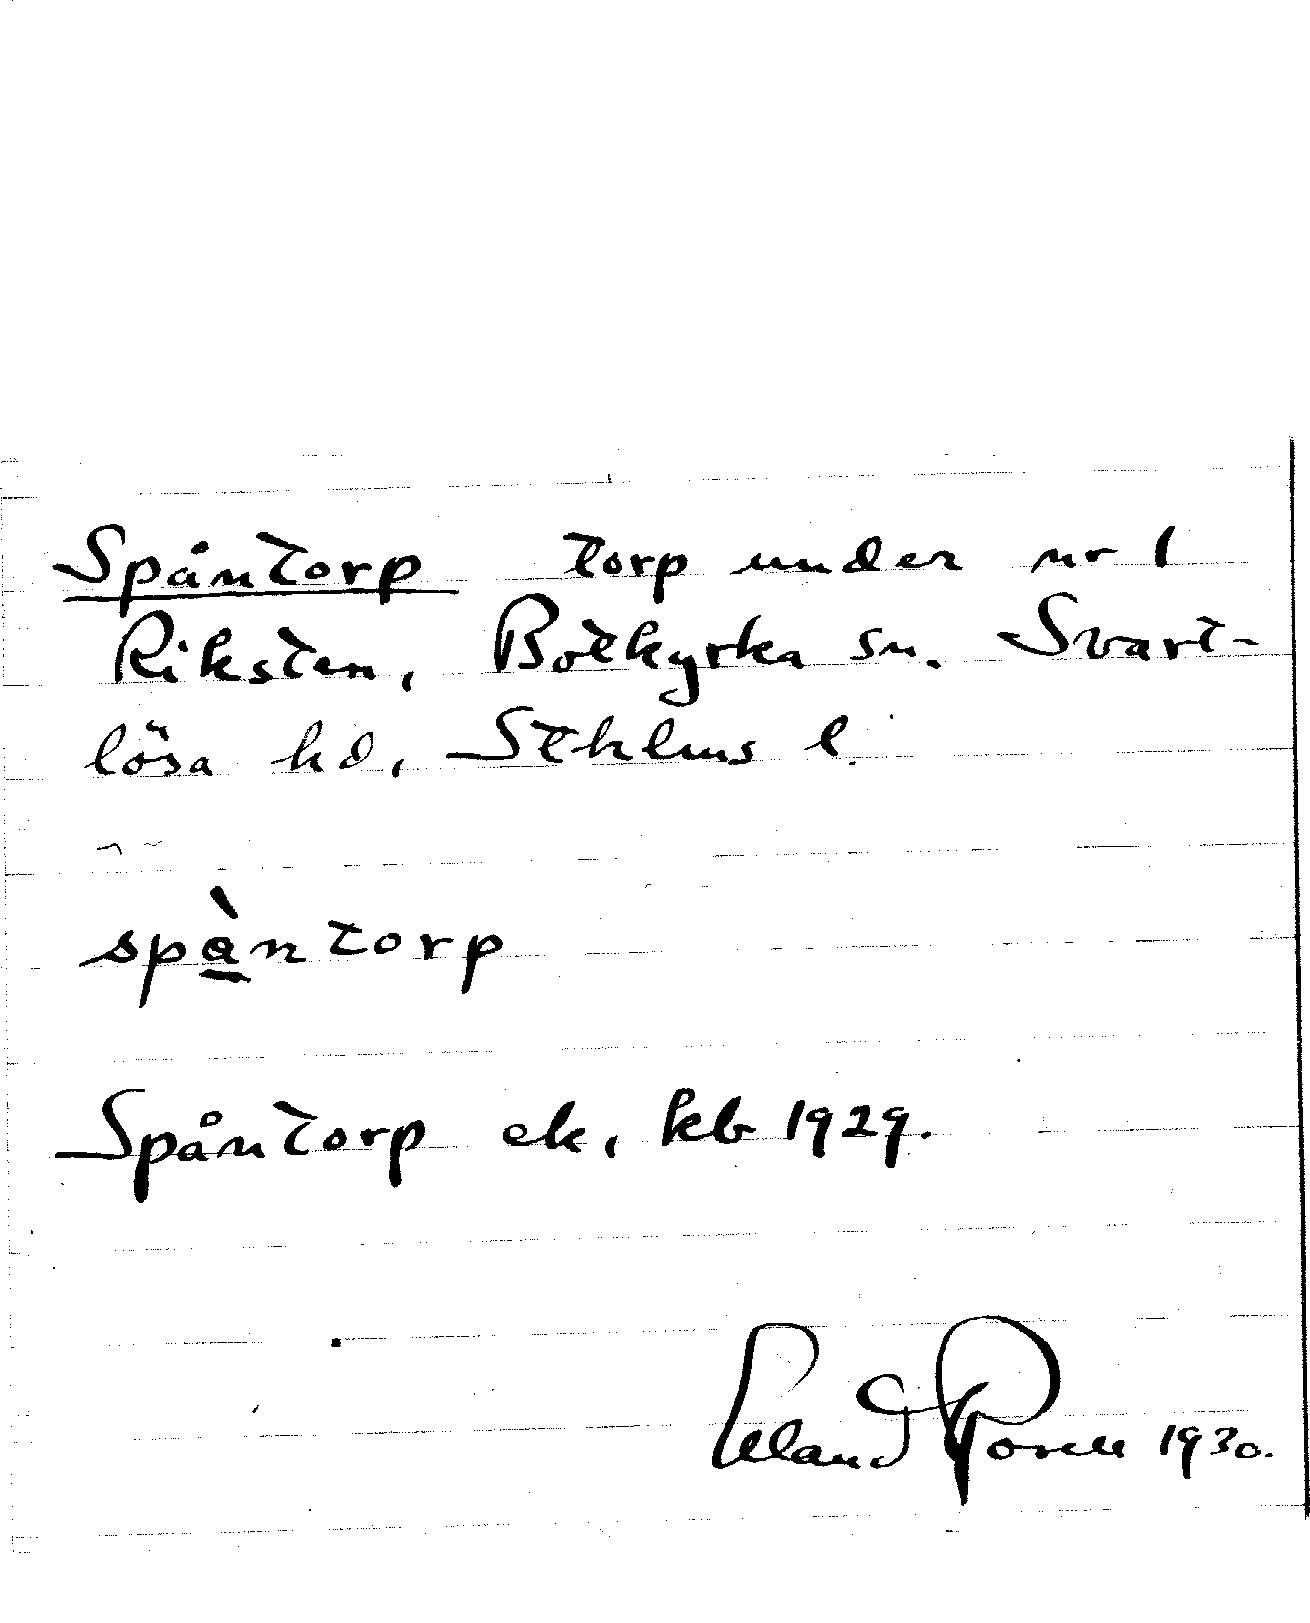 Spåntorp torp under nr 1
Riksten, Botkyrka sn. Svart-
lösa hd, Sthlms l.
spàntorp
Spåntorp ek, kb 1929.
Erland Rosell 1930.